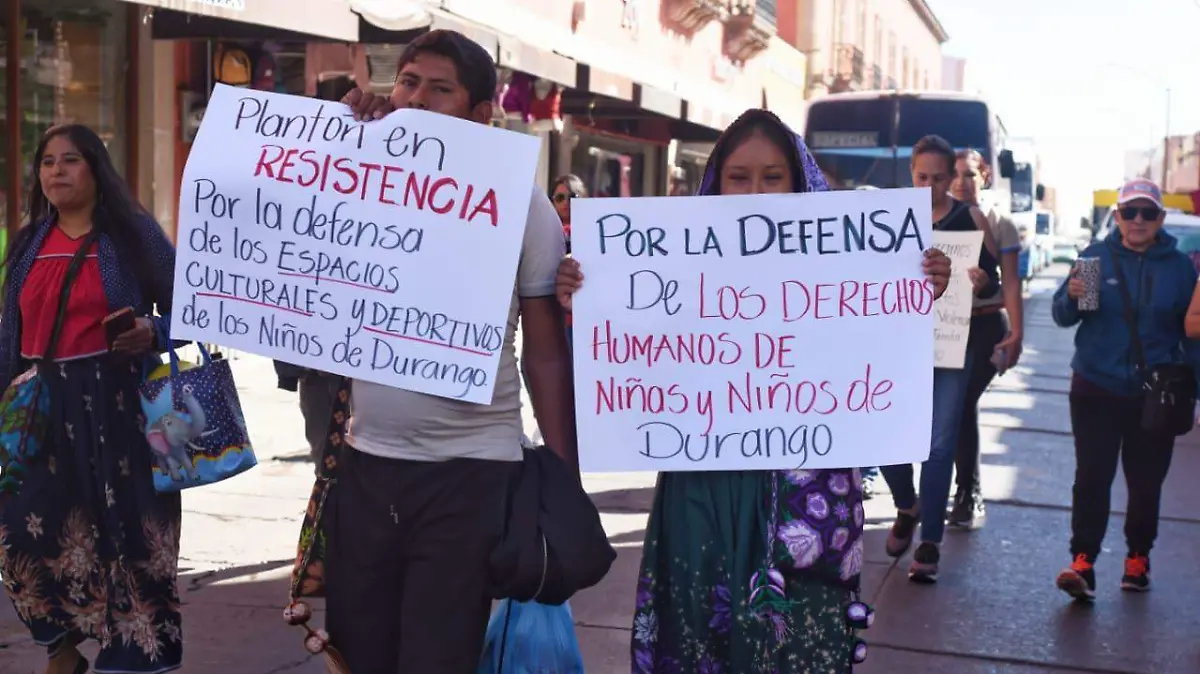 Plantón en
RESISTENCIA
Por la defensa
de los ESPACIOS
CULTURALES y DEPORTIVOS
de los Niños de
Durango.
POR LA DEFENSA
De LOS DERECHOS
HUMANOS DE
Niñas y Niños de
Durango